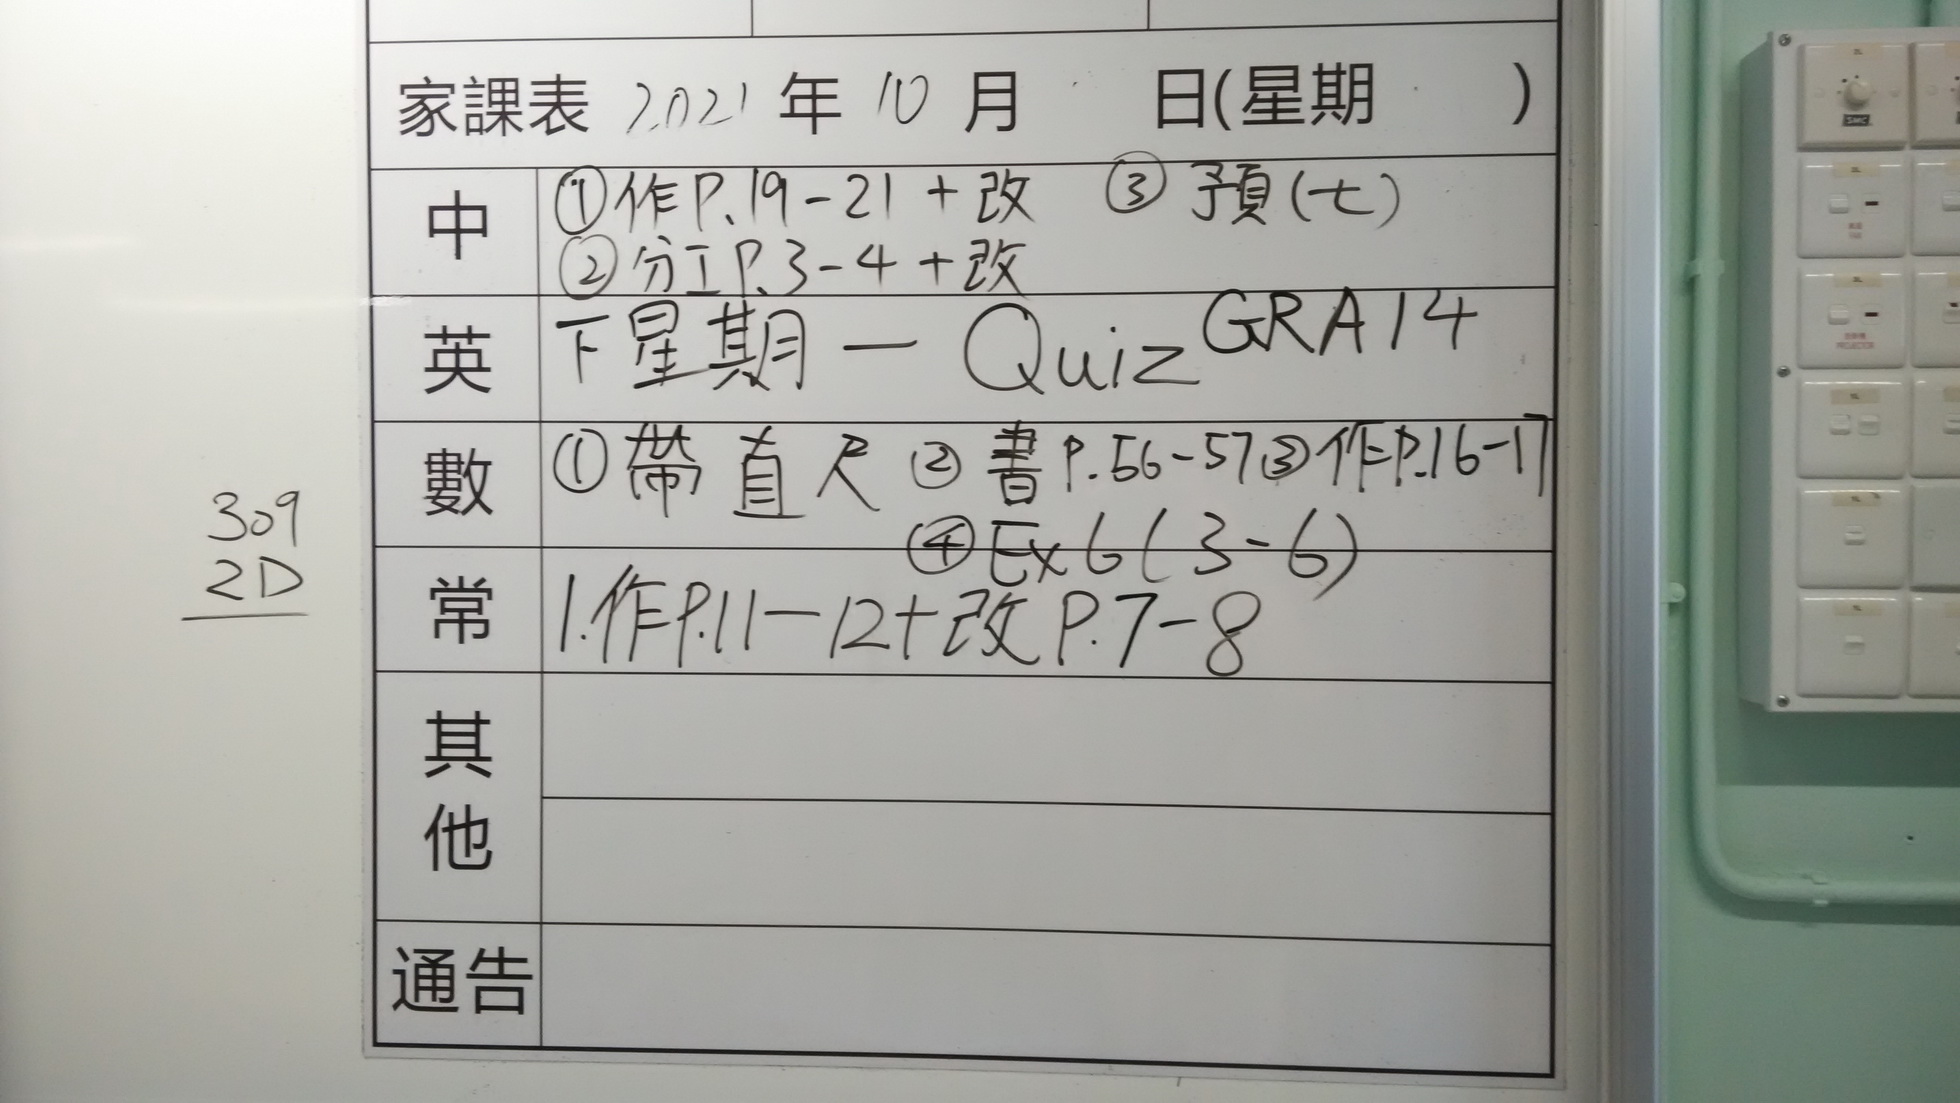 家課表 2021 年 10 月 日(星期 )
中 ①作P.19-21+改 ③預(七)
②分工P.3-4+改
英 下星期一 Quiz GRA14
數 ①帶直尺 ②書P.56-57③作P.16-17
④Ex6(3-6)
常 1.作P.11-12+改P.7-8
其他
通告
309
2D
SMC
PROJECTOR